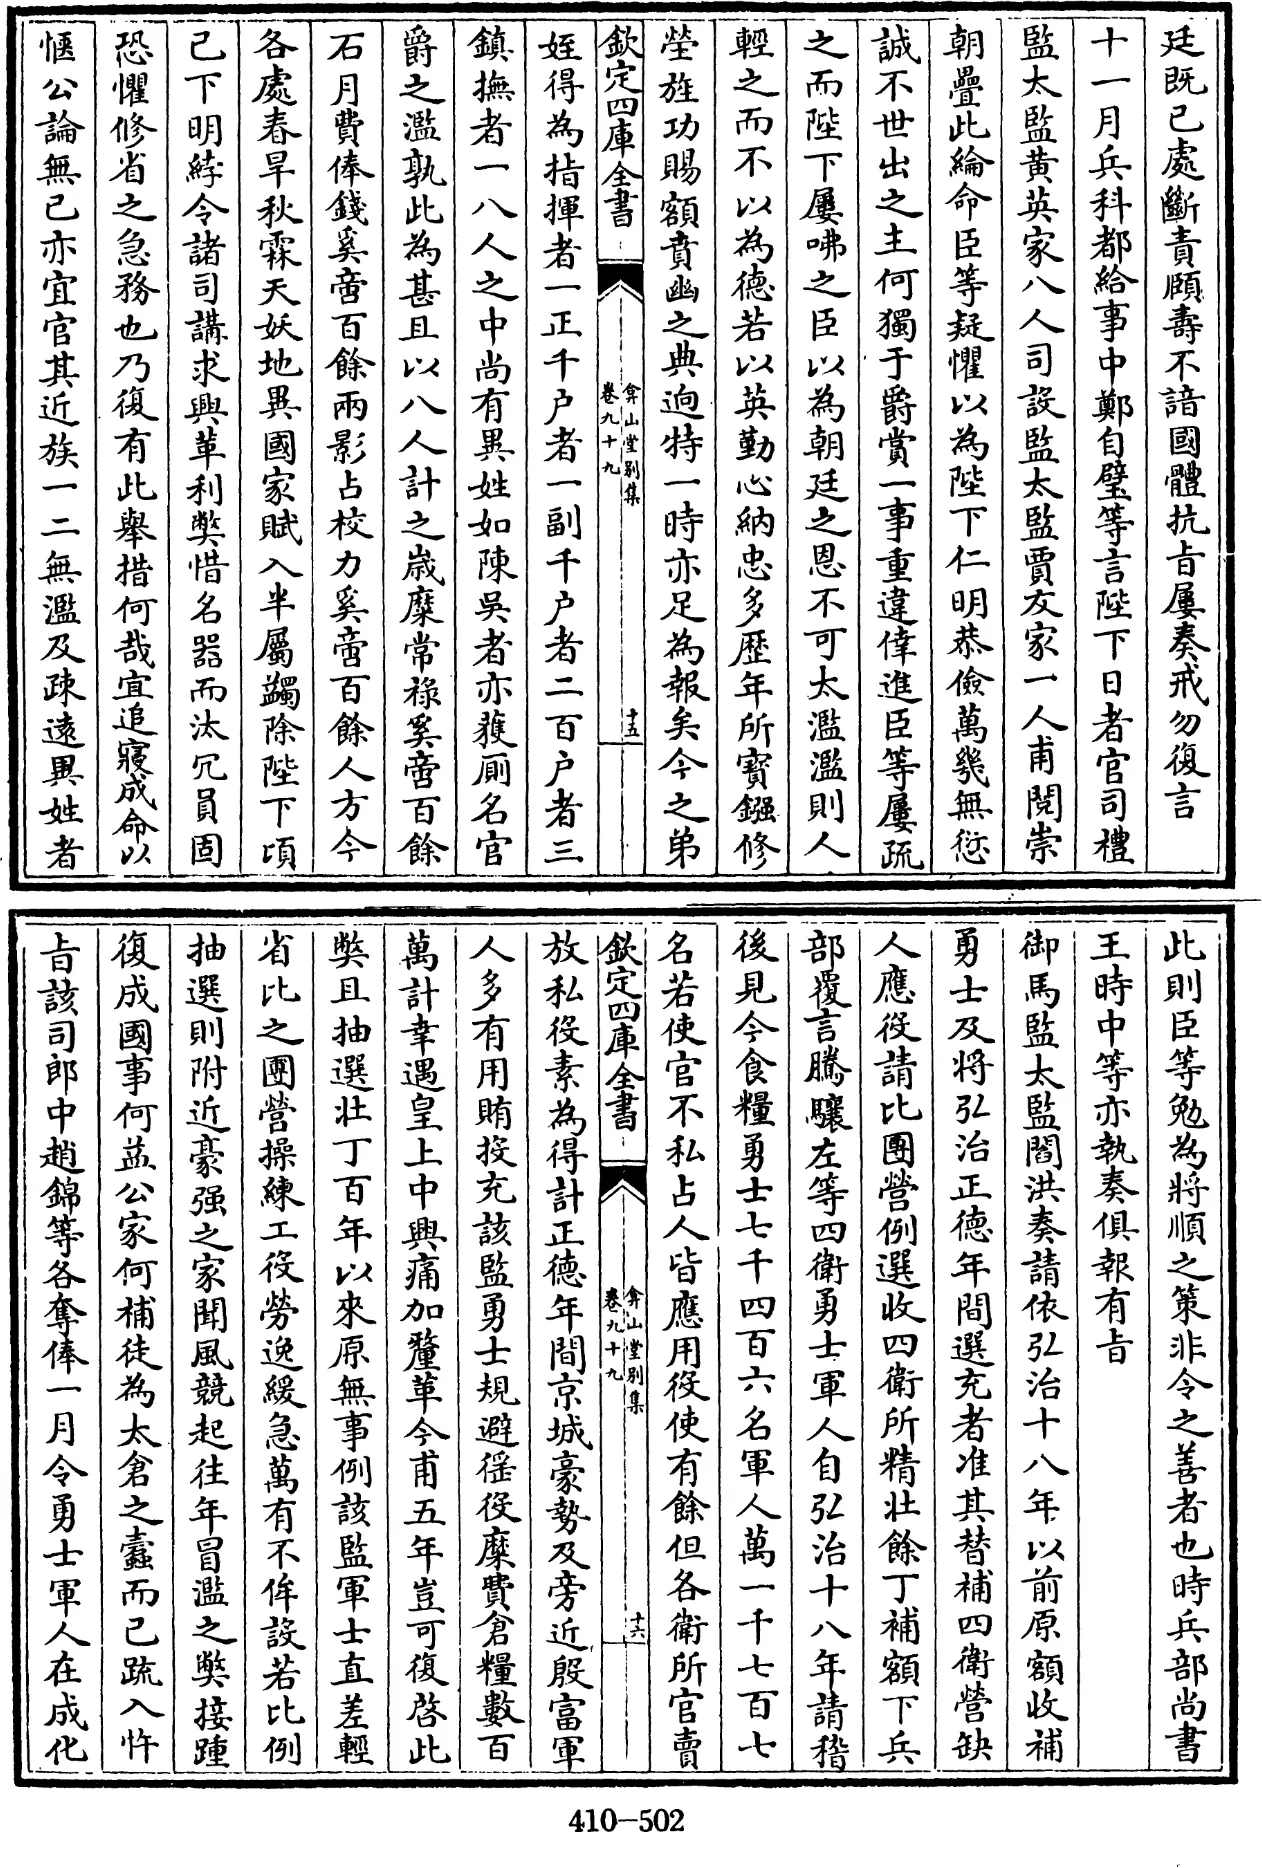 廷既已處斷責頤壽不諳國體抗㫖屢奏戒勿復言
十一月兵科都給事中鄭自璧等言陛下日者官司禮
監太監黄英家八人司設監太監賈友家一人甫閲崇
朝疊此綸命臣等疑懼以為陛下仁明恭儉萬幾無愆
誠不世出之主何獨于爵賞一事重違倖進臣等屢疏
之而陛下屢咈之臣以為朝廷之恩不可太濫濫則人
輕之而不以為德若以英勤心納忠多歴年所寳鏹修
塋旌功賜額賁幽之典逈特一時亦足為報矣今之弟
欽定四庫全書
弇山堂别集
卷九十九
十五
姪得為指揮者一正千户者一副千户者二百户者三
鎮撫者一八人之中尚有異姓如陳吳者亦蒦厠名官
爵之濫孰此為甚且以八人計之嵗糜常祿奚啻百餘
石月費俸錢奚啻百餘兩影占校力奚啻百餘人方今
各處春旱秋霖天妖地異國家賦入半屬蠲除陛下頃
已下明綍令諸司講求興革利弊惜名器而汰冗員固
恐懼修省之急務也乃復有此舉措何哉宜追寢成命以
愜公論無已亦宜官其近族一二無濫及疎逺異姓者
此則臣等勉為將順之策非令之善者也時兵部尚書
王時中等亦執奏俱報有㫖
御馬監太監閻洪奏請依弘治十八年以前原額收補
勇士及將弘治正德年間選充者准其替補四衛營缺
人應役請比團營例選收四衛所精壯餘丁補額下兵
部覆言騰驤左等四衛勇士軍人自弘治十八年請稽
後見今食糧勇士七千四百六名軍人萬一千七百七
名若使官不私占人皆應用役使有餘但各衛所官賣
欽定四庫全書
弇山堂别集
卷九十九
十六
放私役素為得計正德年間京城豪勢及旁近殷富軍
人多有用賄投充該監勇士規避徭役糜費倉糧數百
萬計幸遇皇上中興痛加釐革今甫五年豈可復啓此
弊且抽選壯丁百年以來原無事例該監軍士直差輕
省比之團營操練工役勞逸緩急萬有不侔設若比例
抽選則附近豪强之家聞風競起往年冒濫之弊接踵
復成國事何益公家何補徒為太倉之蠧而已疏入忤
㫖該司郎中趙錦等各奪俸一月令勇士軍人在成化
410-502